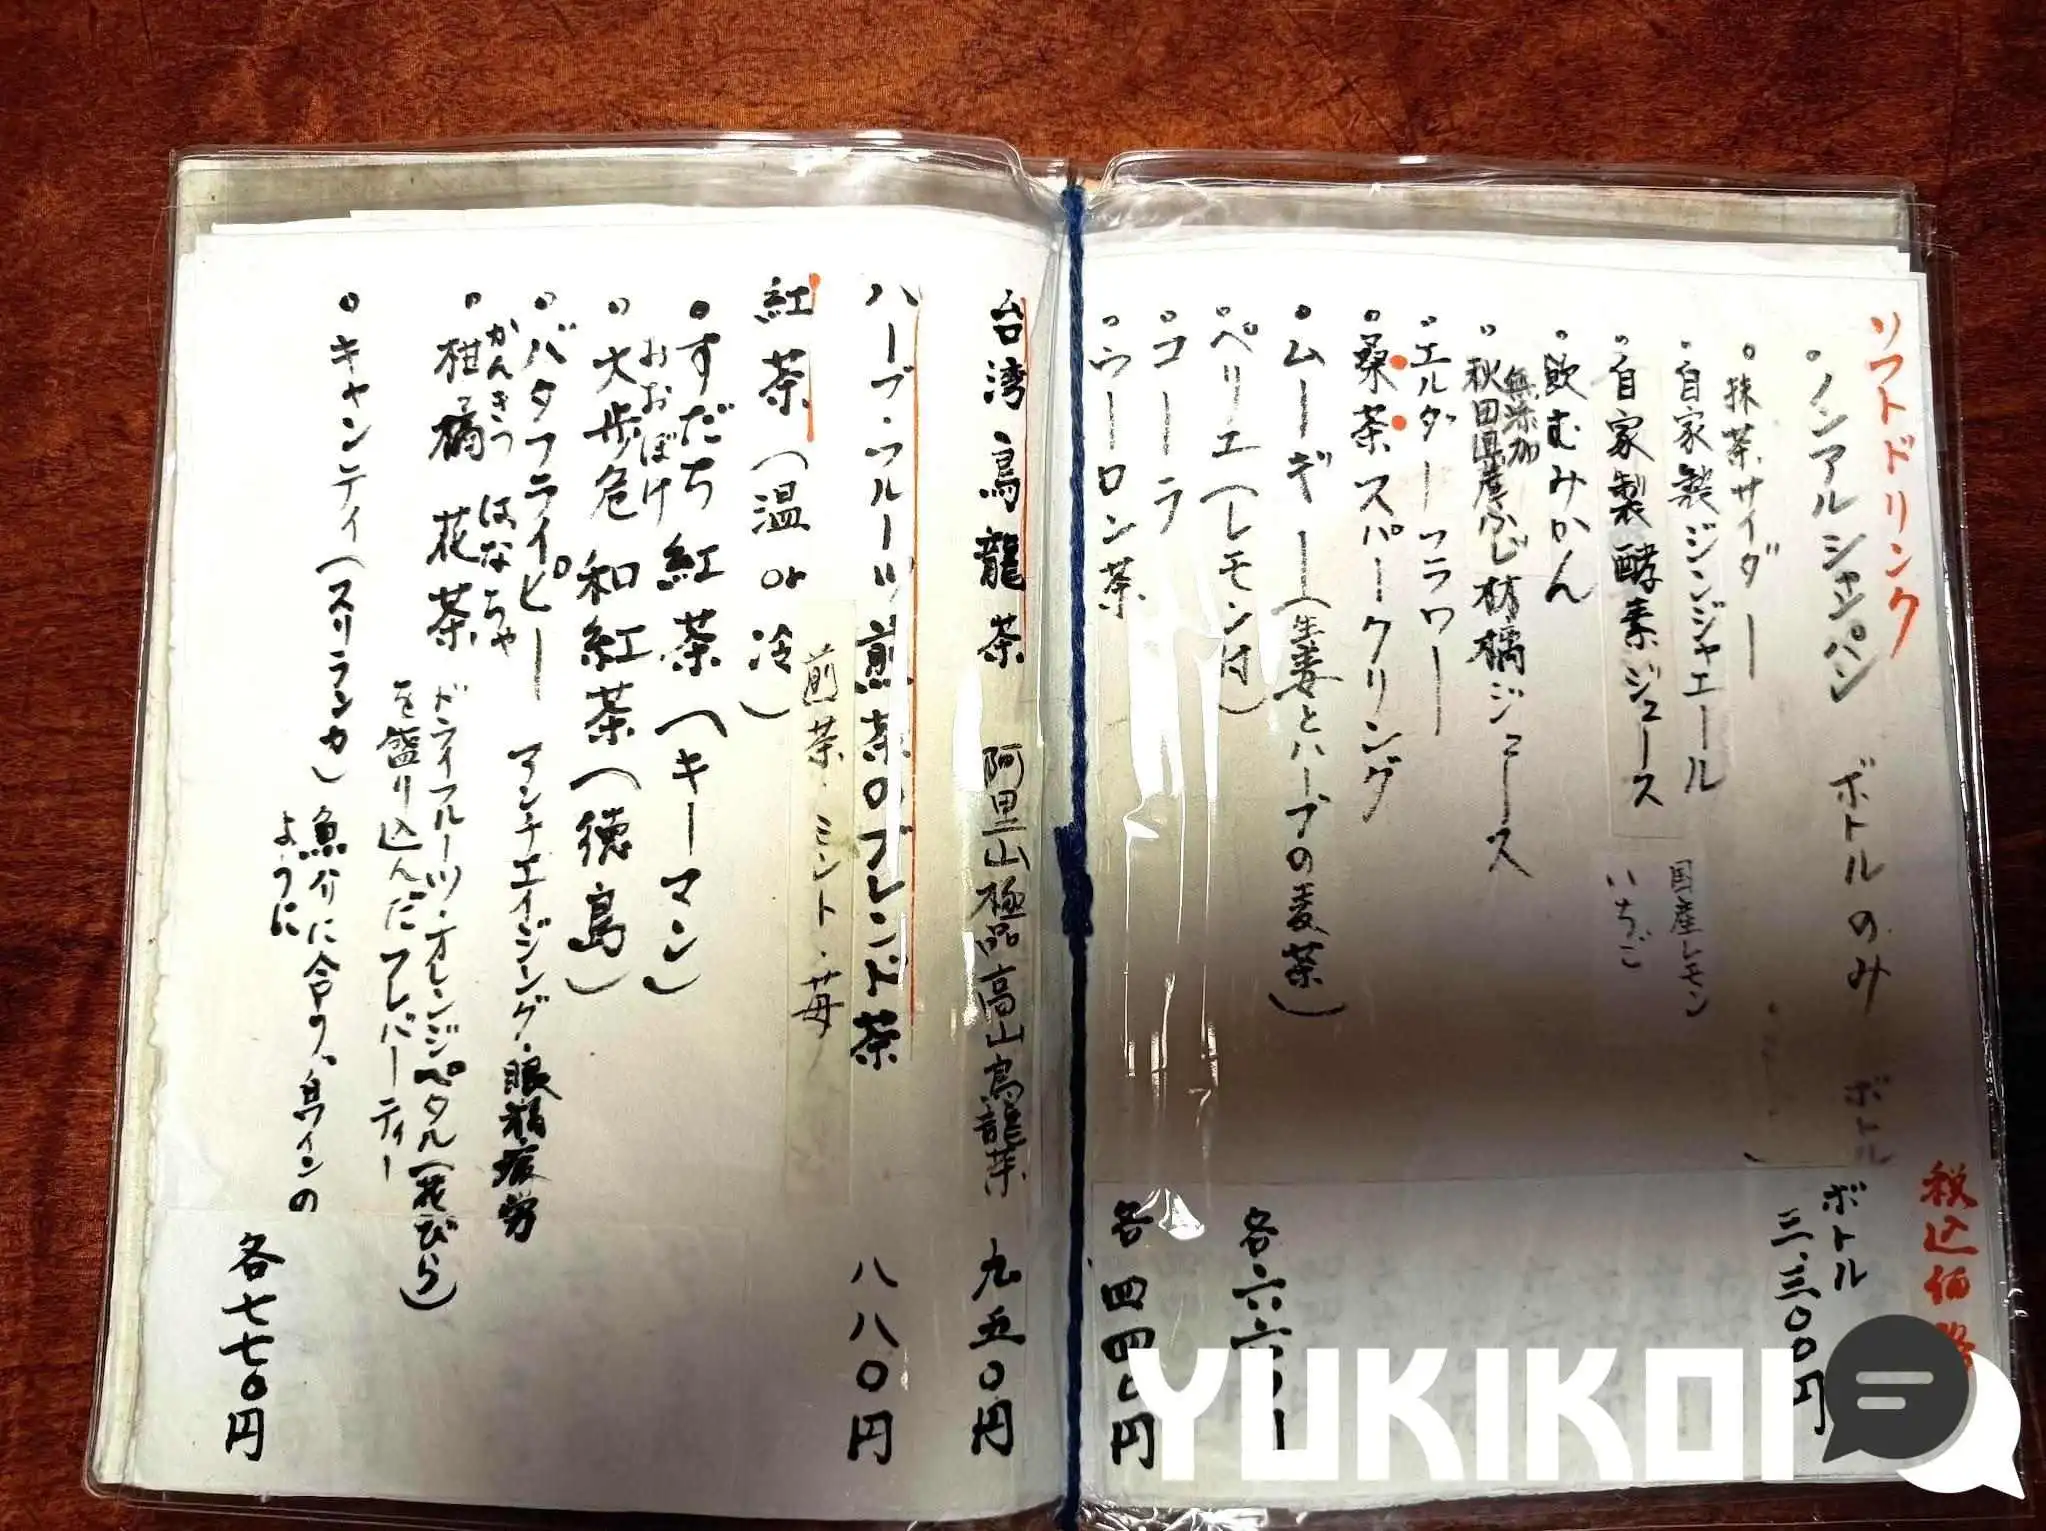 ソフトドリンク
税込価格
・ノンアルシャンパン ボトルのみ ボトル
ボトル 三、三〇〇円
・抹茶サイダー
・自家製ジンジャエール 国産レモン
・自家製酵素ジュース いちご
・飲むみかん
無添加
・秋田県産ふじ林檎ジュース
・エルダーフラワー
・桑茶スパークリング
・ムーギー(生姜とハーブの麦茶)
・ペリエ(レモン付) 各六六〇
・コーラ
・ウーロン茶 各四四〇円
台湾烏龍茶 阿里山極品高山烏龍茶 九五〇円
ハーブ・フルーツ煎茶のブレンド茶 八八〇円
煎茶・ミント・苺
紅茶(温or冷)
・すだち紅茶(キーマン)
おおぼけ
・大歩危和紅茶(徳島)
・バタフライピー アンチエイジング・眼精疲労
かんきつ はなちゃ
・柑橘 花茶 ドライフルーツ・オレンジペタル(花びら)
を盛り込んだフレバーティー
・キャンティ(スリランカ)魚介に合う。白ワインの
ように
各七七〇円
YUKIKOI